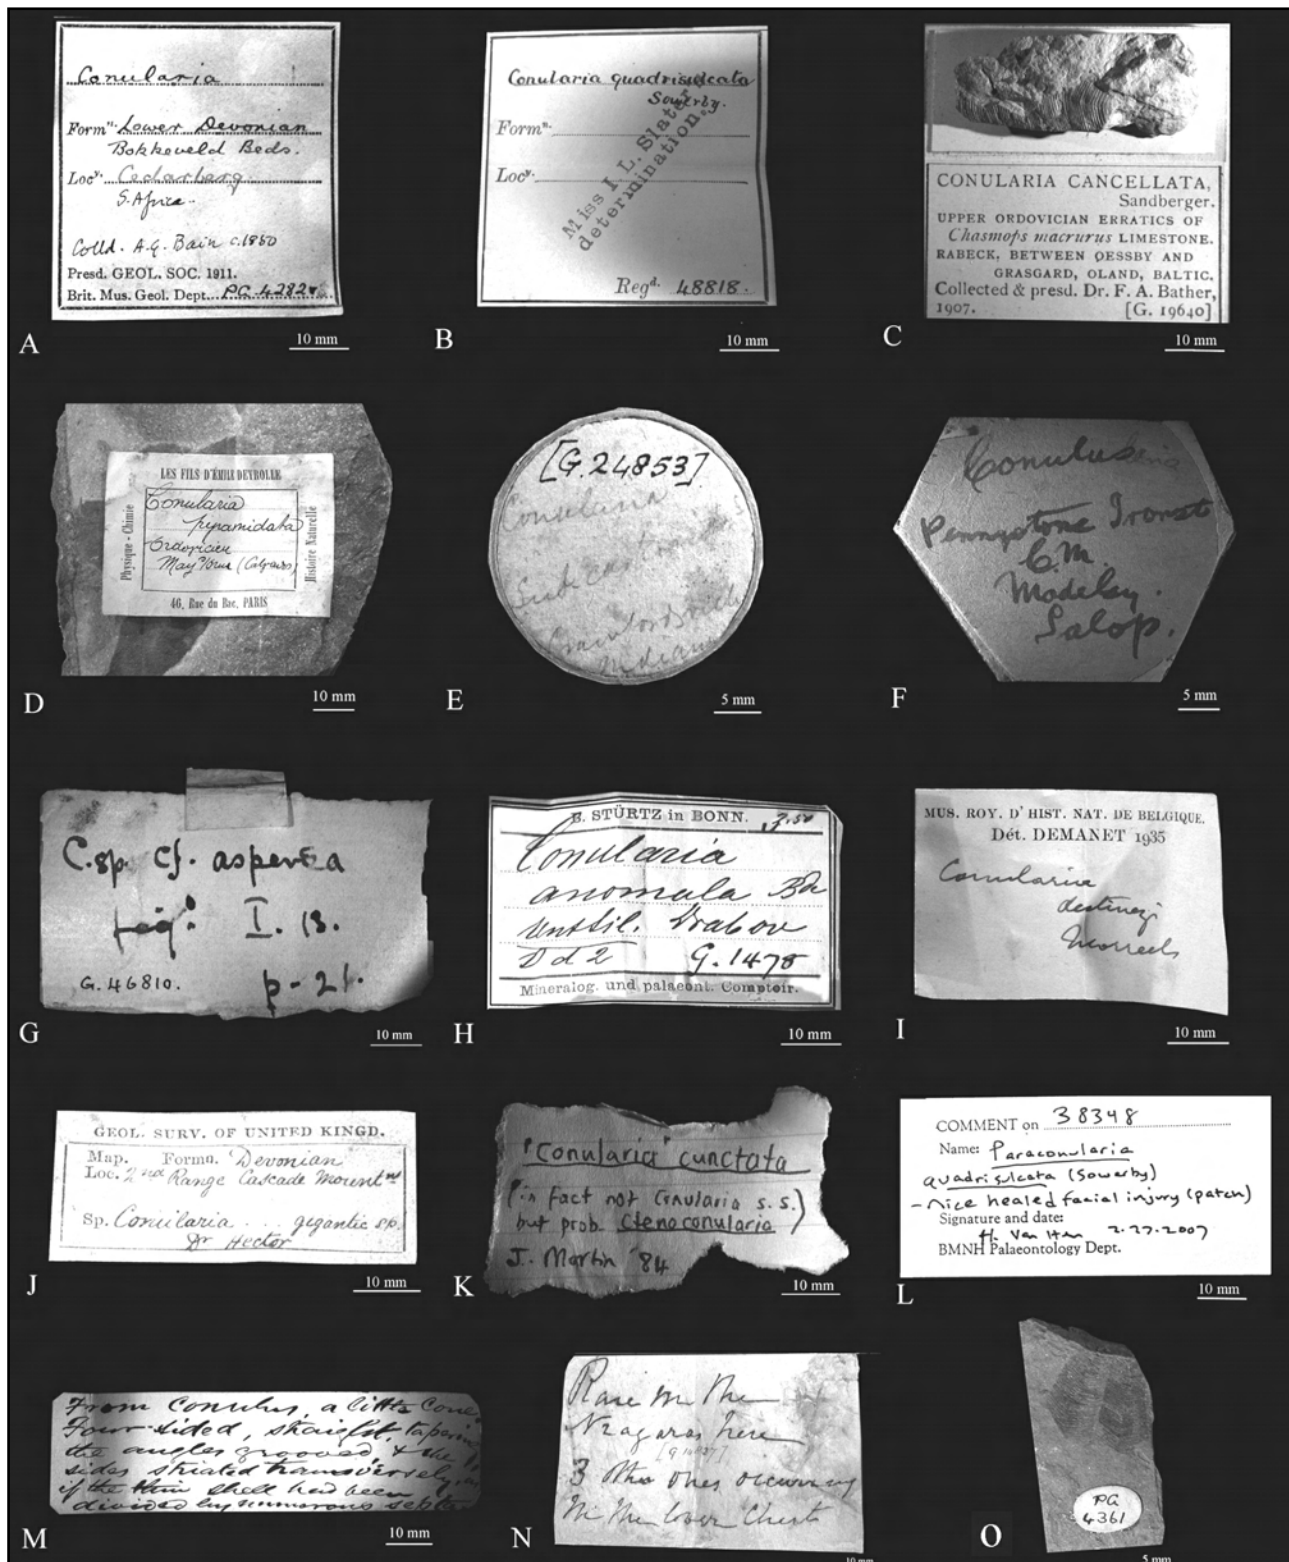 Conularia
Formn. Lower Devonian
Bokkeveld Beds.
Locy. Cedarberg
S. Africa.
Colld. A.G. Bain c.1850
Presd. GEOL. SOC. 1911.
Brit. Mus. Geol. Dept. PG 4282
A
10 mm
Conularia quadrisulcata
Sowerby.
Formn.
Locy.
Miss I. L. Slater's
determination.
Regd. 48818.
B
10 mm
CONULARIA CANCELLATA,
Sandberger.
UPPER ORDOVICIAN ERRATICS OF
Chasmops macrurus LIMESTONE.
RABECK, BETWEEN OESSBY AND
GRASGARD, OLAND, BALTIC.
Collected & presd. Dr. F. A. Bather,
1907. [G. 19640]
C
10 mm
LES FILS D'ÉMILE DEYROLLE
Physique - Chimie
Conularia
pyramidata
Ordovicien
May s/Orne (Calvados)
Histoire Naturelle
46, Rue du Bac, PARIS
D
10 mm
[G.24853]
Conularia
Crawfordsville
Indiana
E
5 mm
Conularia
Pennystone Ironst
C.M.
Madeley.
Salop.
F
5 mm
C. sp. cf. aspersa
fig. I. 13.
G. 46810. p - 21.
G
10 mm
B. STÜRTZ in BONN. 3.50
Conularia
anomala Bd
Unt Sil. Drabov
D d 2 G. 1478
Mineralog. und palaeont. Comptoir.
H
10 mm
MUS. ROY. D'HIST. NAT. DE BELGIQUE.
Dét. DEMANET 1935
Conularia
destinezi
Moreels
I
10 mm
GEOL. SURV. OF UNITED KINGD.
Map. Formn. Devonian
Loc. 2nd Range Cascade Mountn
Sp. Conularia . . . gigantic sp.
Dr Hector
J
10 mm
"Conularia" cunctata
(in fact not Conularia s.s.)
but prob. Ctenoconularia
J. Martin '84
K
10 mm
COMMENT on 38348
Name: Paraconularia
quadrisulcata (Sowerby)
- nice healed facial injury (patch)
Signature and date:
H. Van Iten 2.27.2007
BMNH Palaeontology Dept.
L
10 mm
From Conulus, a little Cone
Four-sided, straight, tapering
the angles grooved, & the
sides striated transversely, as
if the thin shell had been
divided by numerous septa
M
10 mm
Rare in the
Niagara here
3 other ones occurring
in the lower Cherts
N
10 mm
PG
4361
O
5 mm